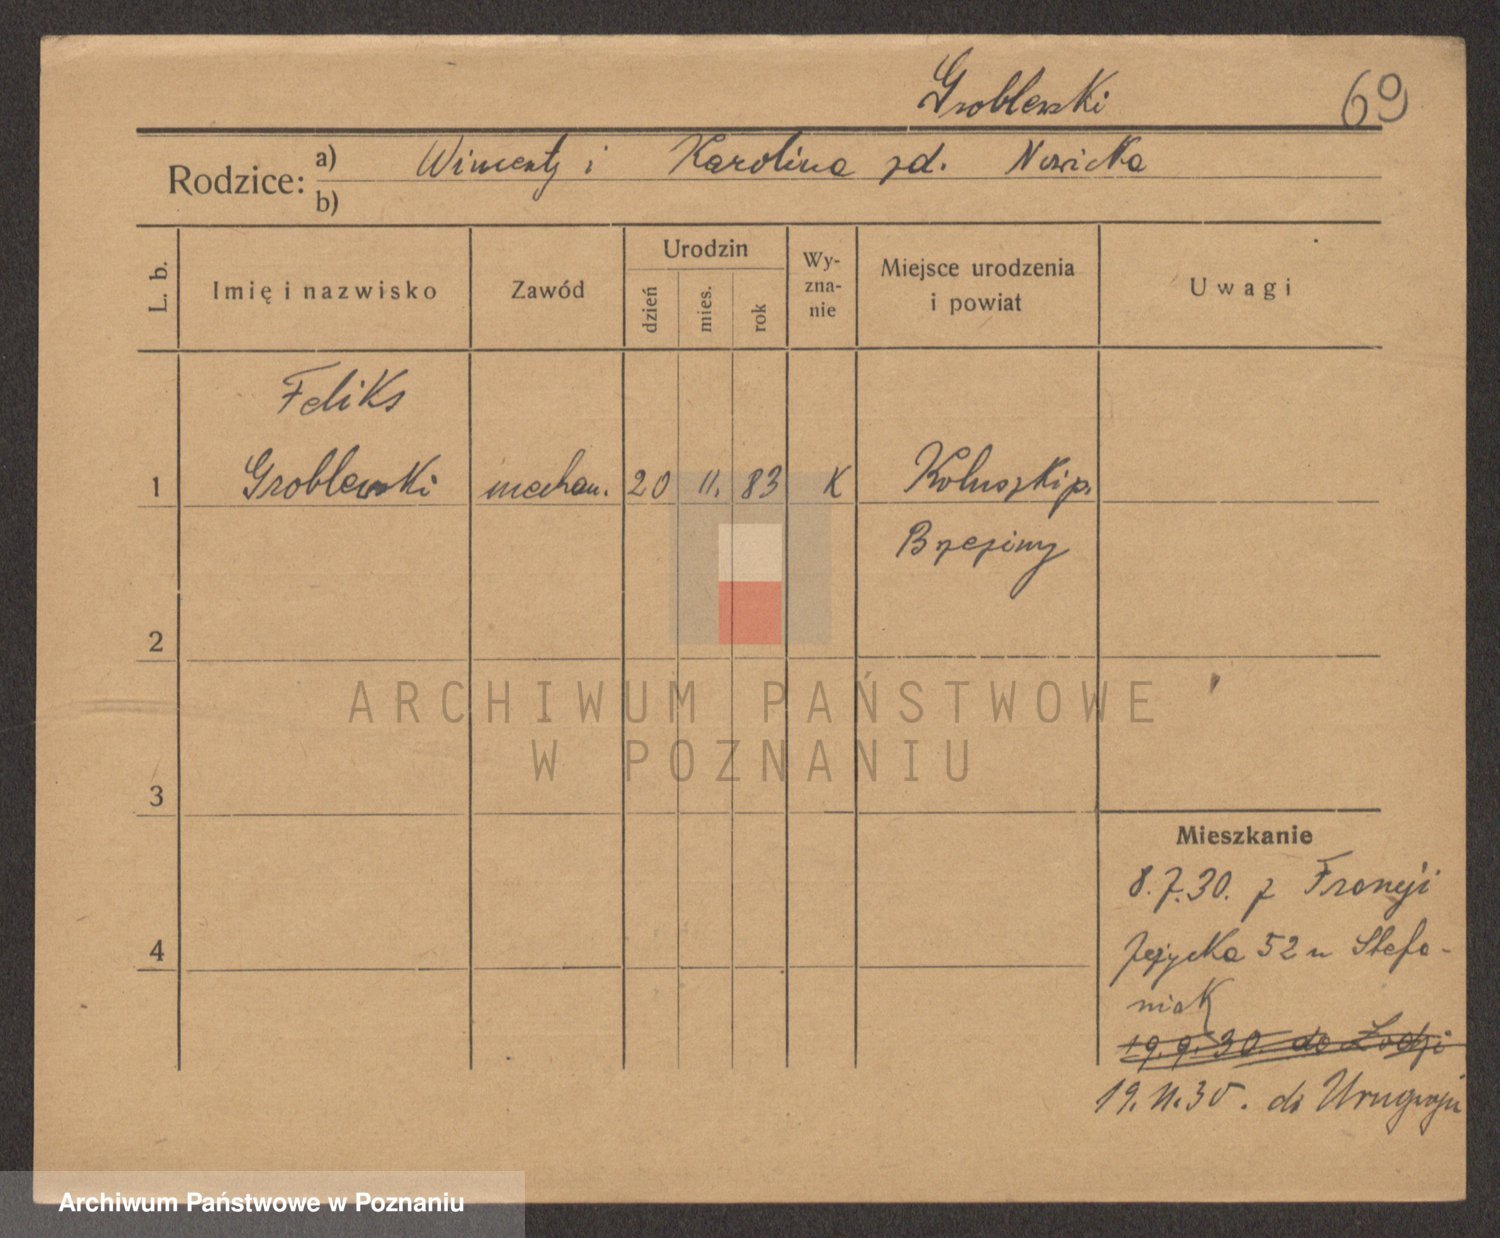 Groblewski
69
Rodzice: a) Wincenty i Karolina zd. Nowicka
b)
L. b.
Imię i nazwisko
Zawód
Urodzin
dzień
mies.
rok
Wy-
zna-
nie
Miejsce urodzenia
i powiat
Uwagi
Feliks
1 Groblewski mechan. 20 11. 83 K Koluszki p.
Brzeziny
2
3
4
ARCHIWUM PAŃSTWOWE
W POZNANIU
Mieszkanie
8.7.30. z Francji
Jeżycka 52 u Stefa-
niak
19.9.30 do Łodzi
19.11.30. do Urugwaju
Archiwum Państwowe w Poznaniu